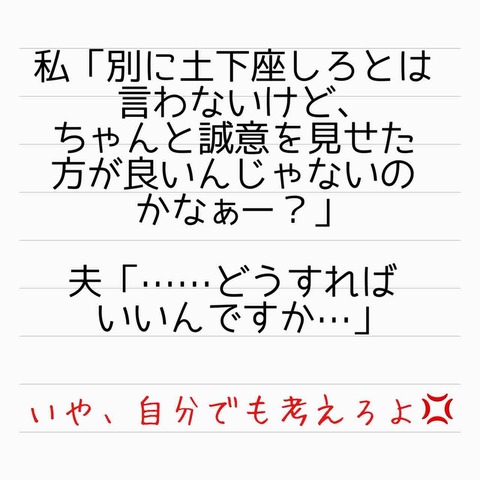 私「別に土下座しろとは
言わないけど、
ちゃんと誠意を見せた
方が良いんじゃないの
かなぁー？」
夫「……どうすれば
いいんですか…」
いや、自分でも考えろよ💢